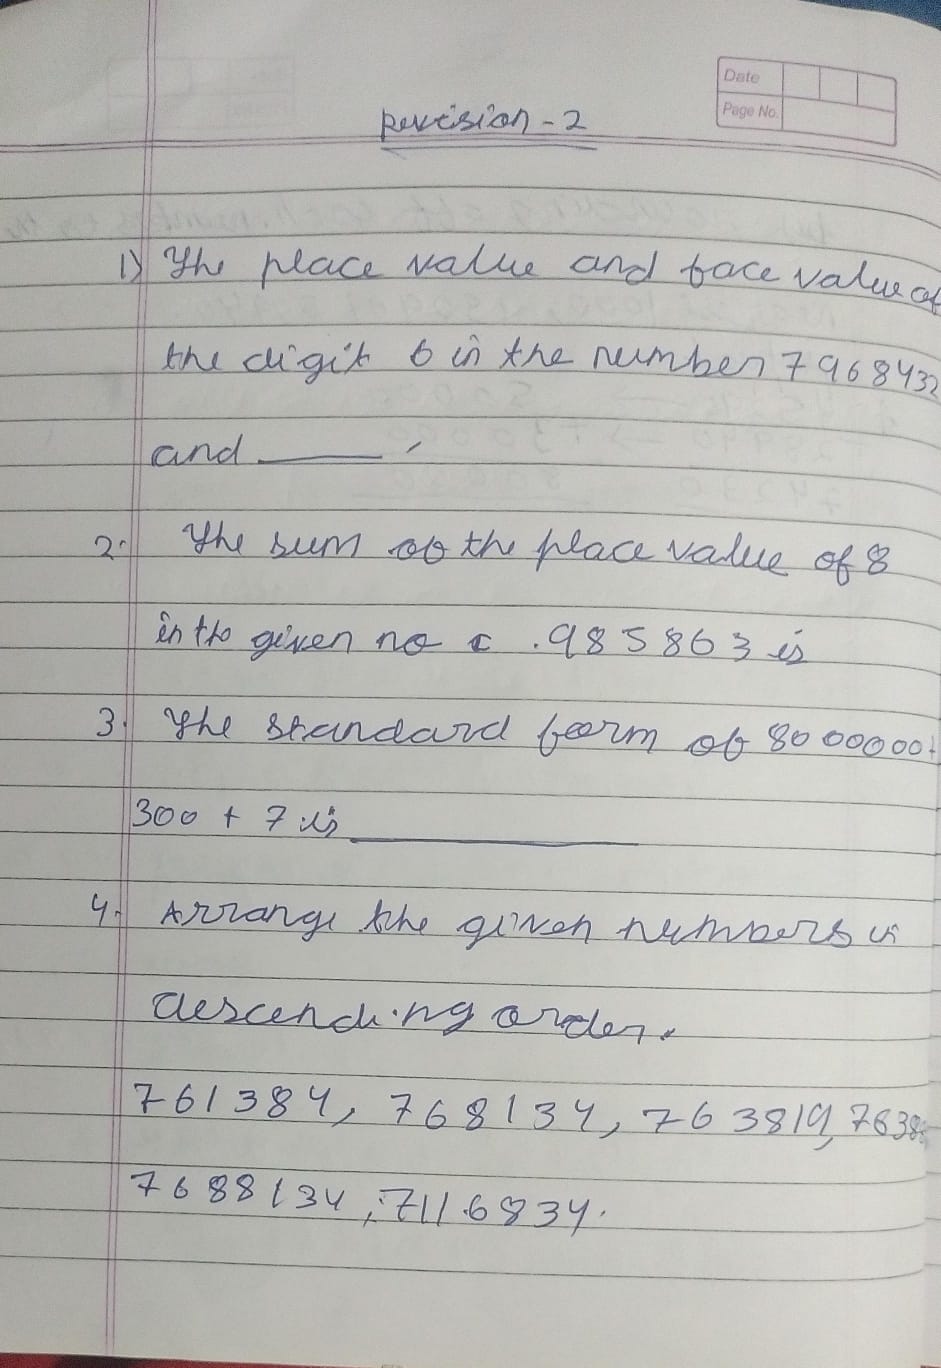 Date
Page No.
Revision - 2
1) The place value and face value of
the digit 6 in the number 7968432
and ______ ,
2. The sum of the place value of 8
in the given no . 985863 is
3. The standard form of 8000000+
300 + 7 is ______
4. Arrange the given numbers in
descending order.
761384, 768134, 763819,
7688134, 7116834.